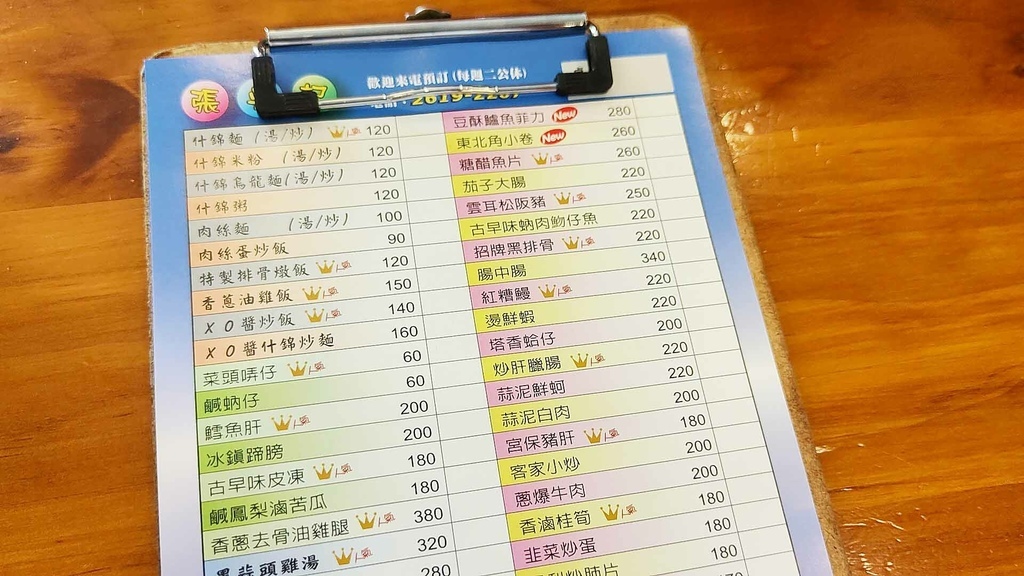 歡迎來電預訂(每週二公休)
張
什錦麵 (湯/炒) 人氣 120
什錦米粉 (湯/炒) 120
什錦烏龍麵(湯/炒) 120
什錦粥 120
肉絲麵 (湯/炒) 100
肉絲蛋炒飯 90
特製排骨燉飯 人氣 120
香蔥油雞飯 人氣 150
XO醬炒飯 人氣 140
XO醬什錦炒麵 160
菜頭哢仔 人氣 60
鹹蚋仔 60
鱈魚肝 人氣 200
冰鎮蹄膀 200
古早味皮凍 人氣 180
鹹鳳梨滷苦瓜 180
香蔥去骨油雞腿 人氣 380
黑蒜頭雞湯 人氣 320
280
豆酥鱸魚菲力 New 280
東北角小卷 New 260
糖醋魚片 人氣 260
茄子大腸 220
雲耳松阪豬 人氣 250
古早味蚋肉吻仔魚 220
招牌黑排骨 人氣 220
腸中腸 340
紅糟鰻 人氣 220
燙鮮蝦 220
塔香蛤仔 200
炒肝臘腸 人氣 220
蒜泥鮮蚵 220
蒜泥白肉 200
宮保豬肝 人氣 180
客家小炒 200
蔥爆牛肉 200
香滷桂筍 人氣 180
韭菜炒蛋 180
炒肺片 180